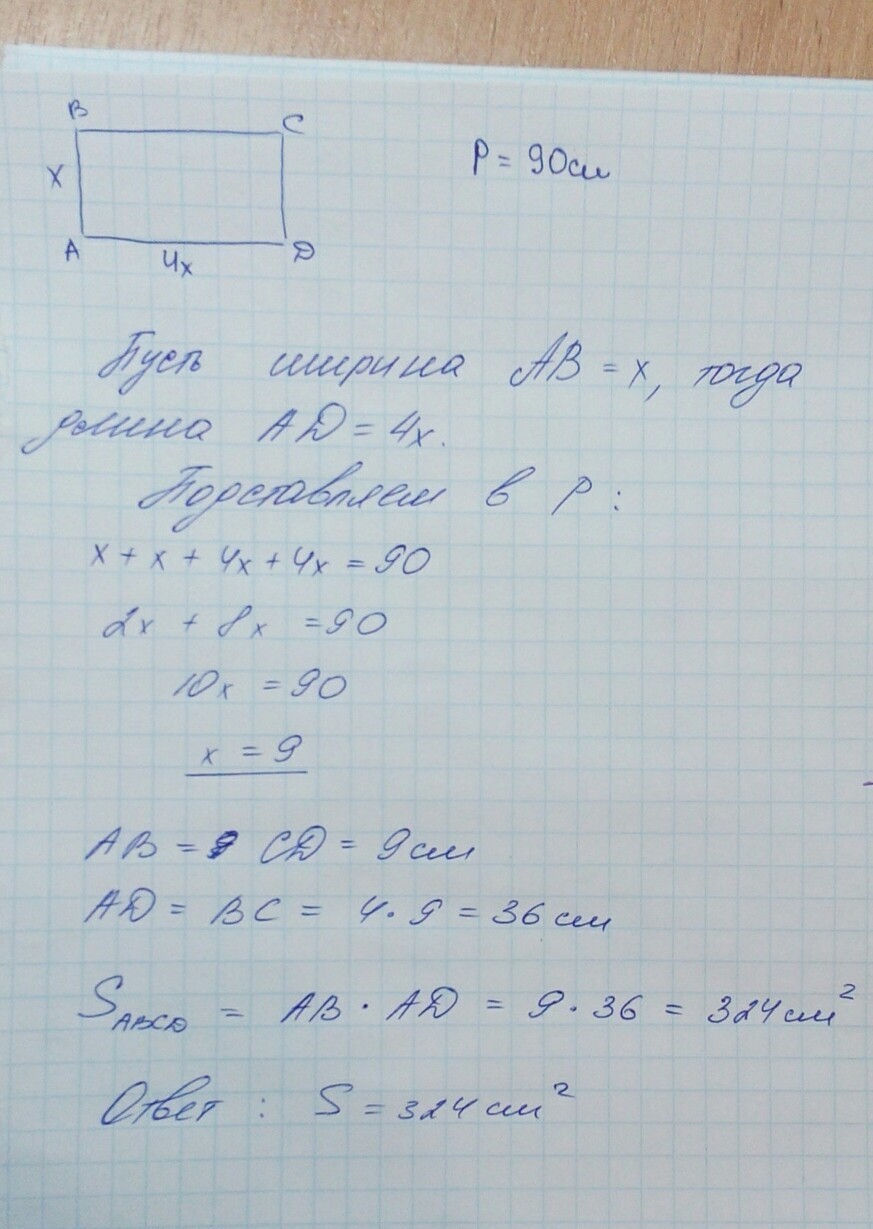 B
C
P = 90см
x
A
D
4x
Пусть ширина AB = x, тогда
длина AD = 4x.
Подставляем в P :
x + x + 4x + 4x = 90
2x + 8x = 90
10x = 90
x = 9
AB = CD = 9 см
AD = BC = 4 · 9 = 36 см
S ABCD = AB · AD = 9 · 36 = 324 см²
Ответ : S = 324 см²